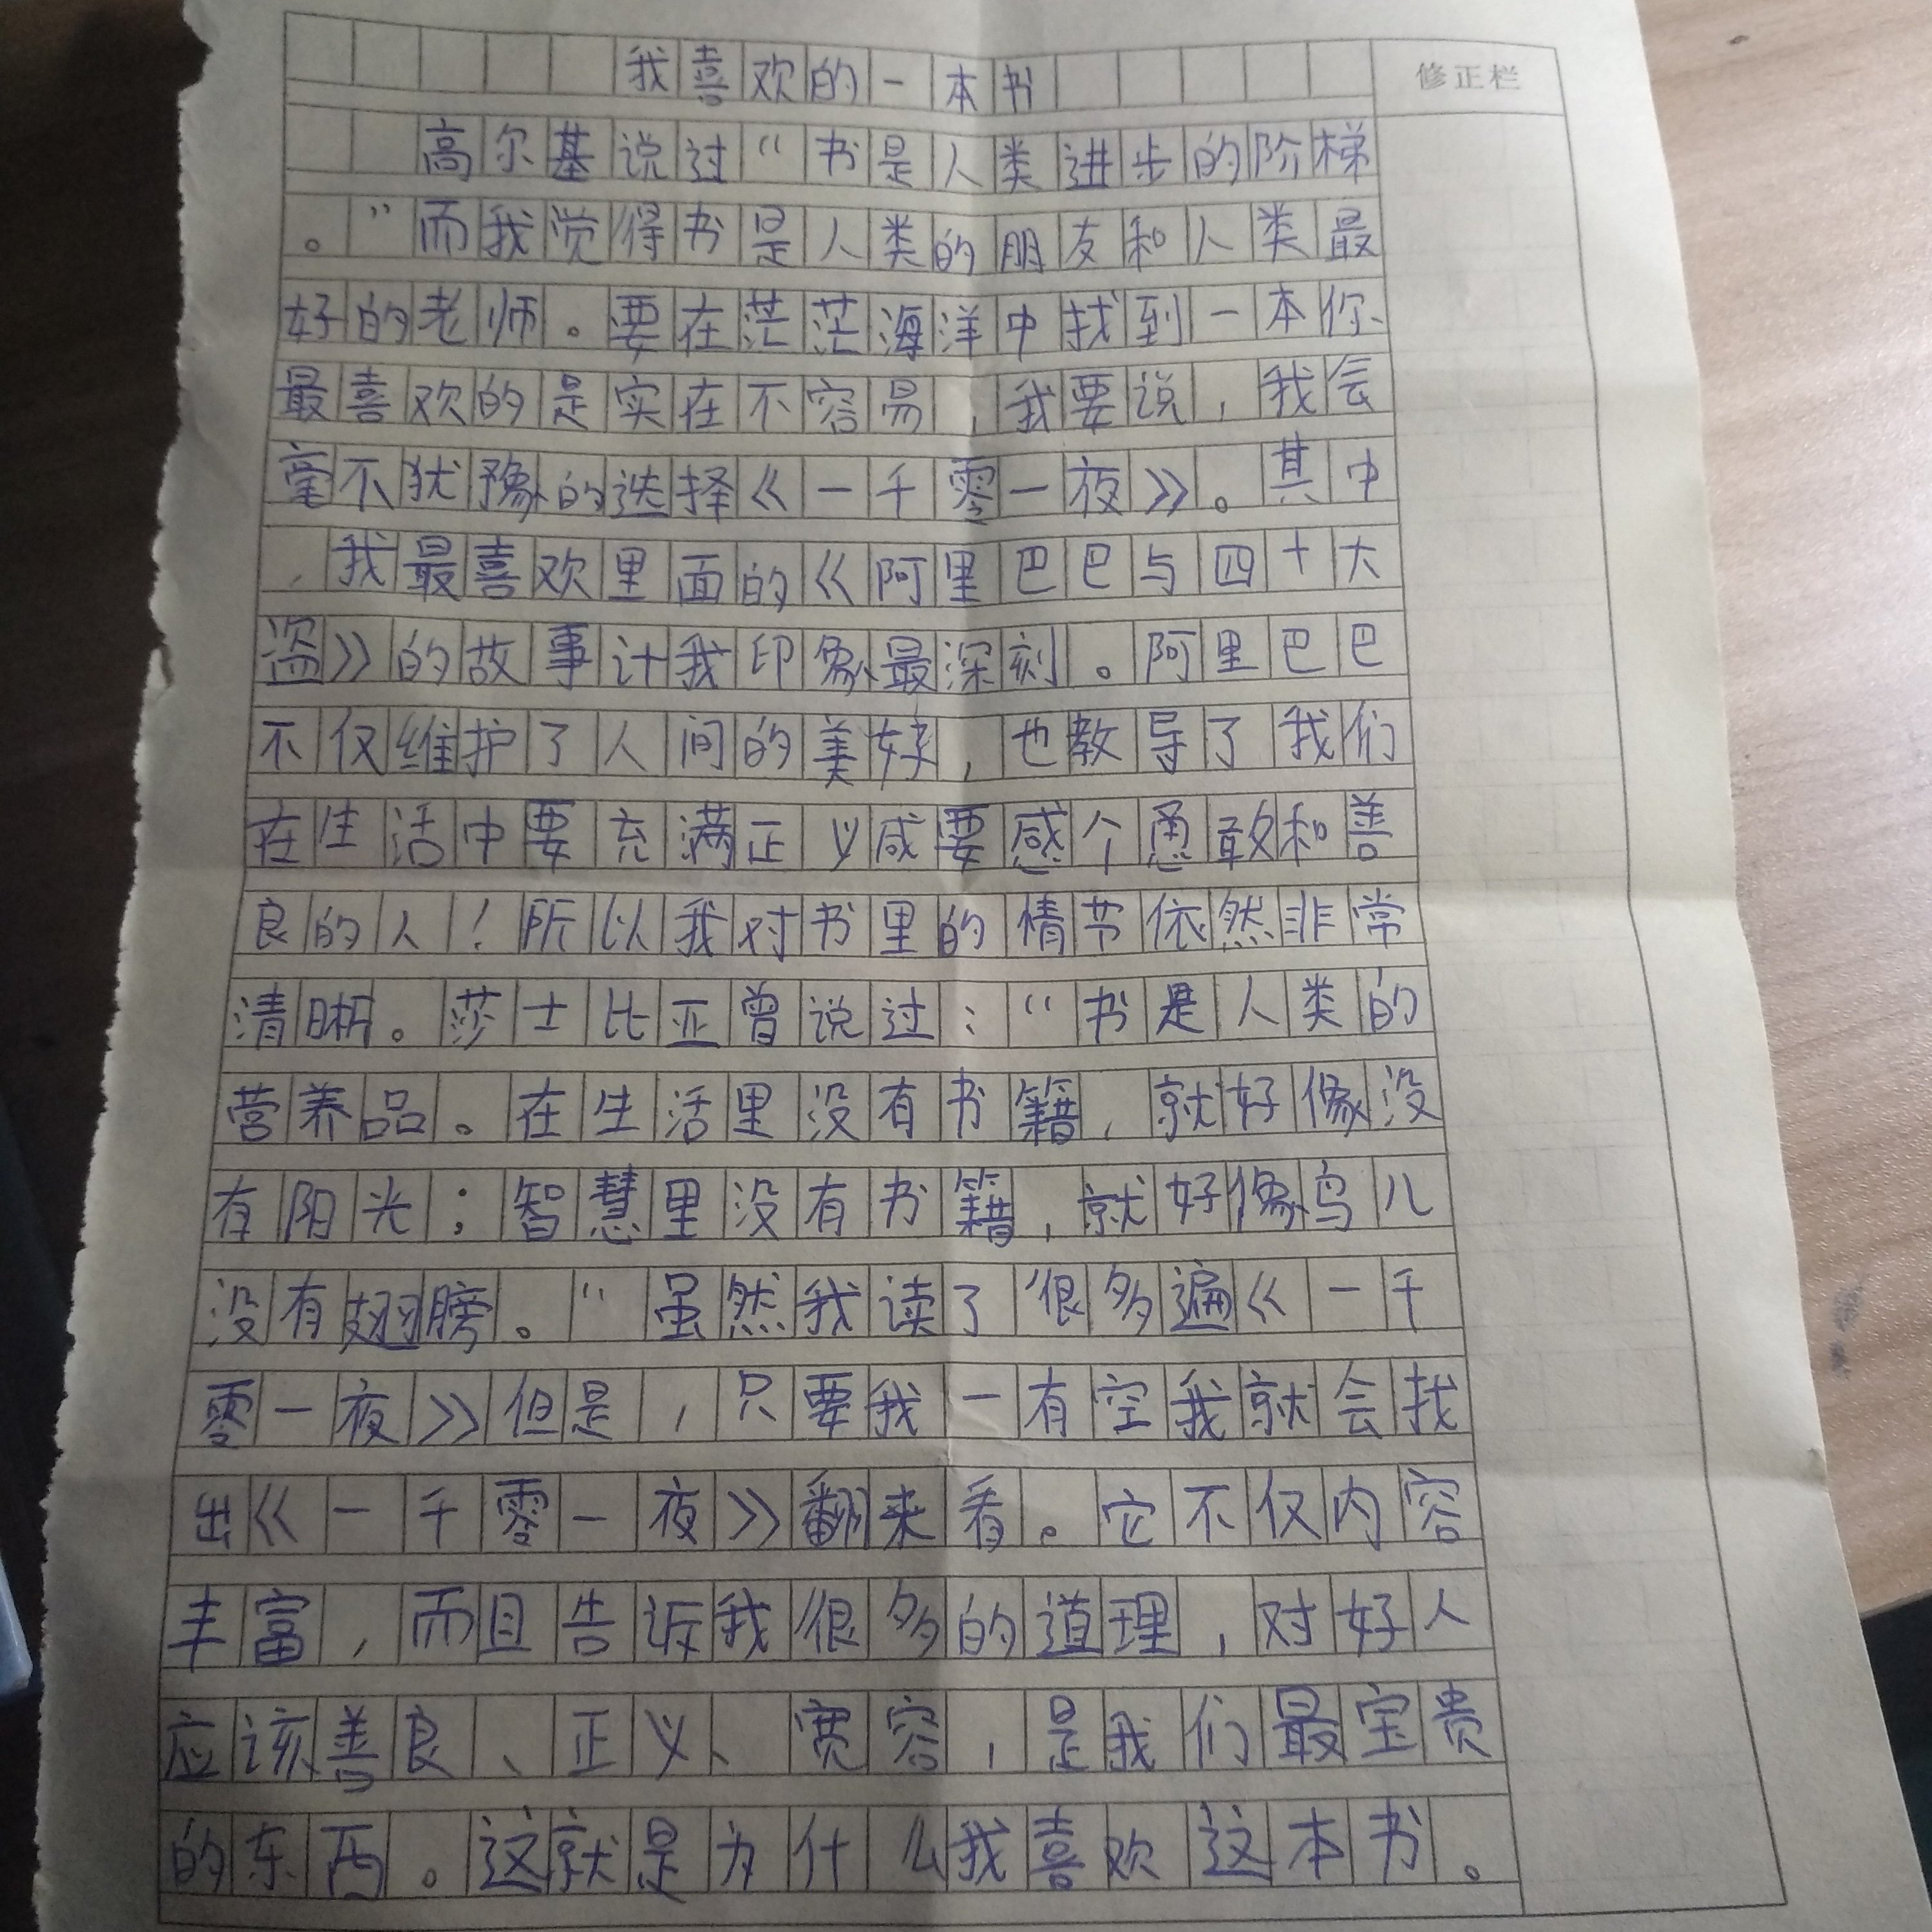 我喜欢的一本书
修正栏
高尔基说过“书是人类进步的阶梯
。”而我觉得书是人类的朋友和人类最
好的老师。要在茫茫海洋中找到一本你
最喜欢的是实在不容易，我要说，我会
毫不犹豫的选择《一千零一夜》。其中
，我最喜欢里面的《阿里巴巴与四十大
盗》的故事计我印象最深刻。阿里巴巴
不仅维护了人间的美好，也教导了我们
在生活中要充满正义咸要感个勇敢和善
良的人！所以我对书里的情节依然非常
清晰。莎士比亚曾说过：“书是人类的
营养品。在生活里没有书籍，就好像没
有阳光；智慧里没有书籍，就好像鸟儿
没有翅膀。“虽然我读了很多遍《一千
零一夜》但是，只要我一有空我就会找
出《一千零一夜》翻来看。它不仅内容
丰富，而且告诉我很多的道理，对好人
应该善良、正义、宽容，是我们最宝贵
的东西。这就是为什么我喜欢这本书。